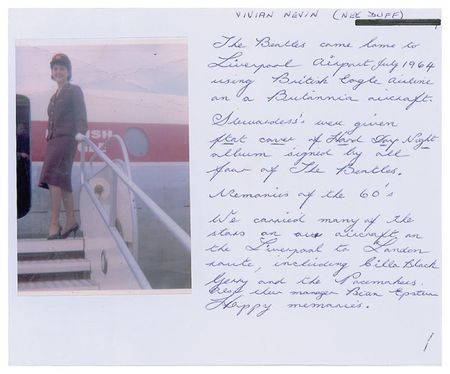 VIVIAN NEVIN (NEE DUFF)
The Beatles come home to
Liverpool Airport July 1964
using British Eagle Airline
on a Britannia aircraft.
Stewardess's were given
flat cover of Hard Day Night
album signed by all
four of The Beatles.
Memories of the 60's
We carried many of the
stars on our aircraft on
the Liverpool to London
route, including Cilla Black
Gerry and the Pacemakers.
Also their manager Brian Epstein
Happy memories.
ISH
GLE